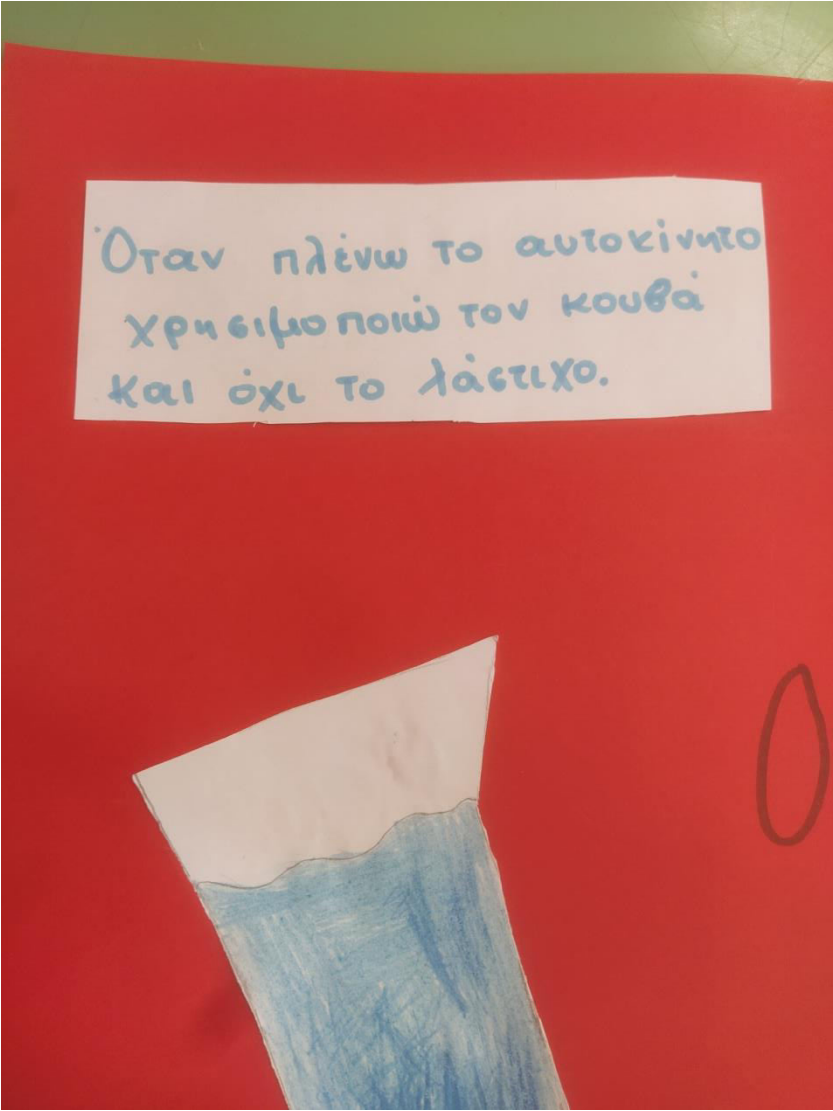 Όταν πλένω το αυτοκίνητο
χρησιμοποιώ τον κουβά
και όχι το λάστιχο.